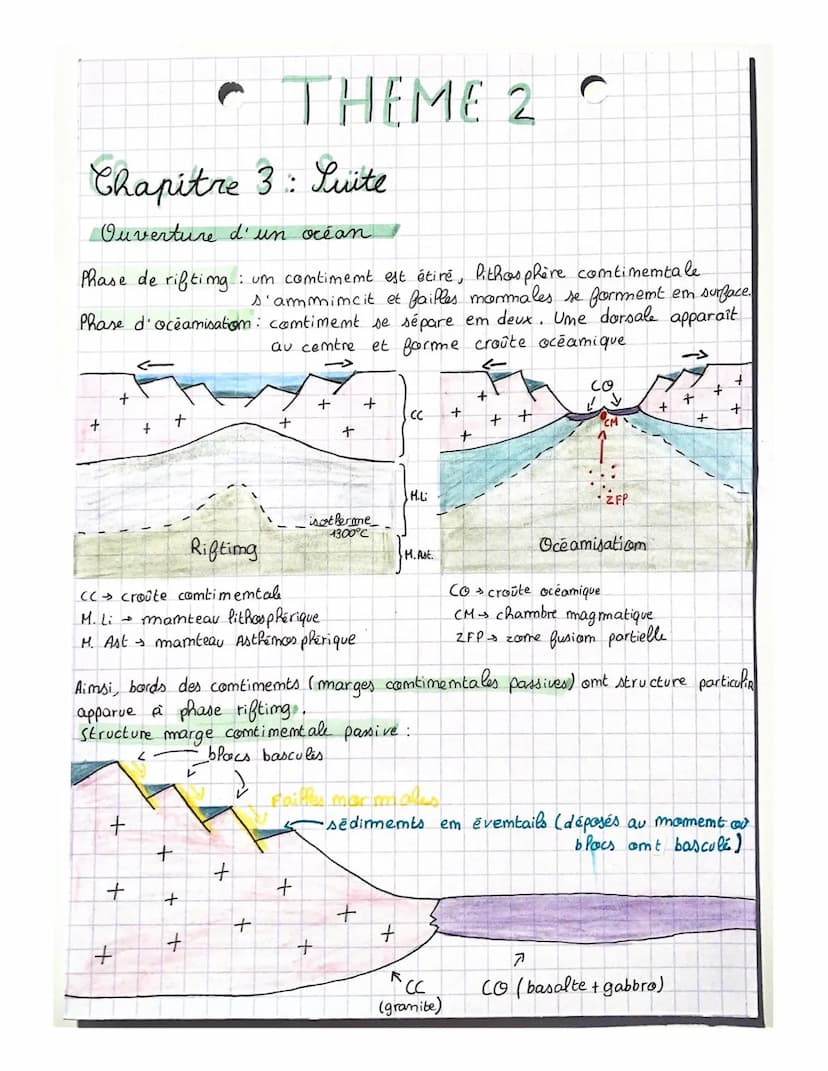 THEME 2
Chapitre 3 : Suite
Ouverture d'un océan
Phase de rifting : un continent est étiré, lithosphère continentale
s'ammincit et failles normales se forment en surface.
Phase d'océanisation : continent se sépare en deux. Une dorsale apparaît
au centre et forme croûte océanique
CC
M.Li
isotherme
1300°C
M.Ast.
Rifting
CO
CM
ZFP
Océanisation
CC → croûte continentale
M. Li → manteau lithosphérique
M. Ast → manteau Asthénosphérique
CO → croûte océanique
CM → chambre magmatique
ZFP → zone fusion partielle
Ainsi, bords des continents (marges continentales passives) ont structure particulir
apparue à phase rifting.
Structure marge continentale passive :
blocs basculés
Failles normales
sédirments en éventails (déposés au moment où
blocs ont basculé)
CC
(granite)
CO (basalte + gabbro)